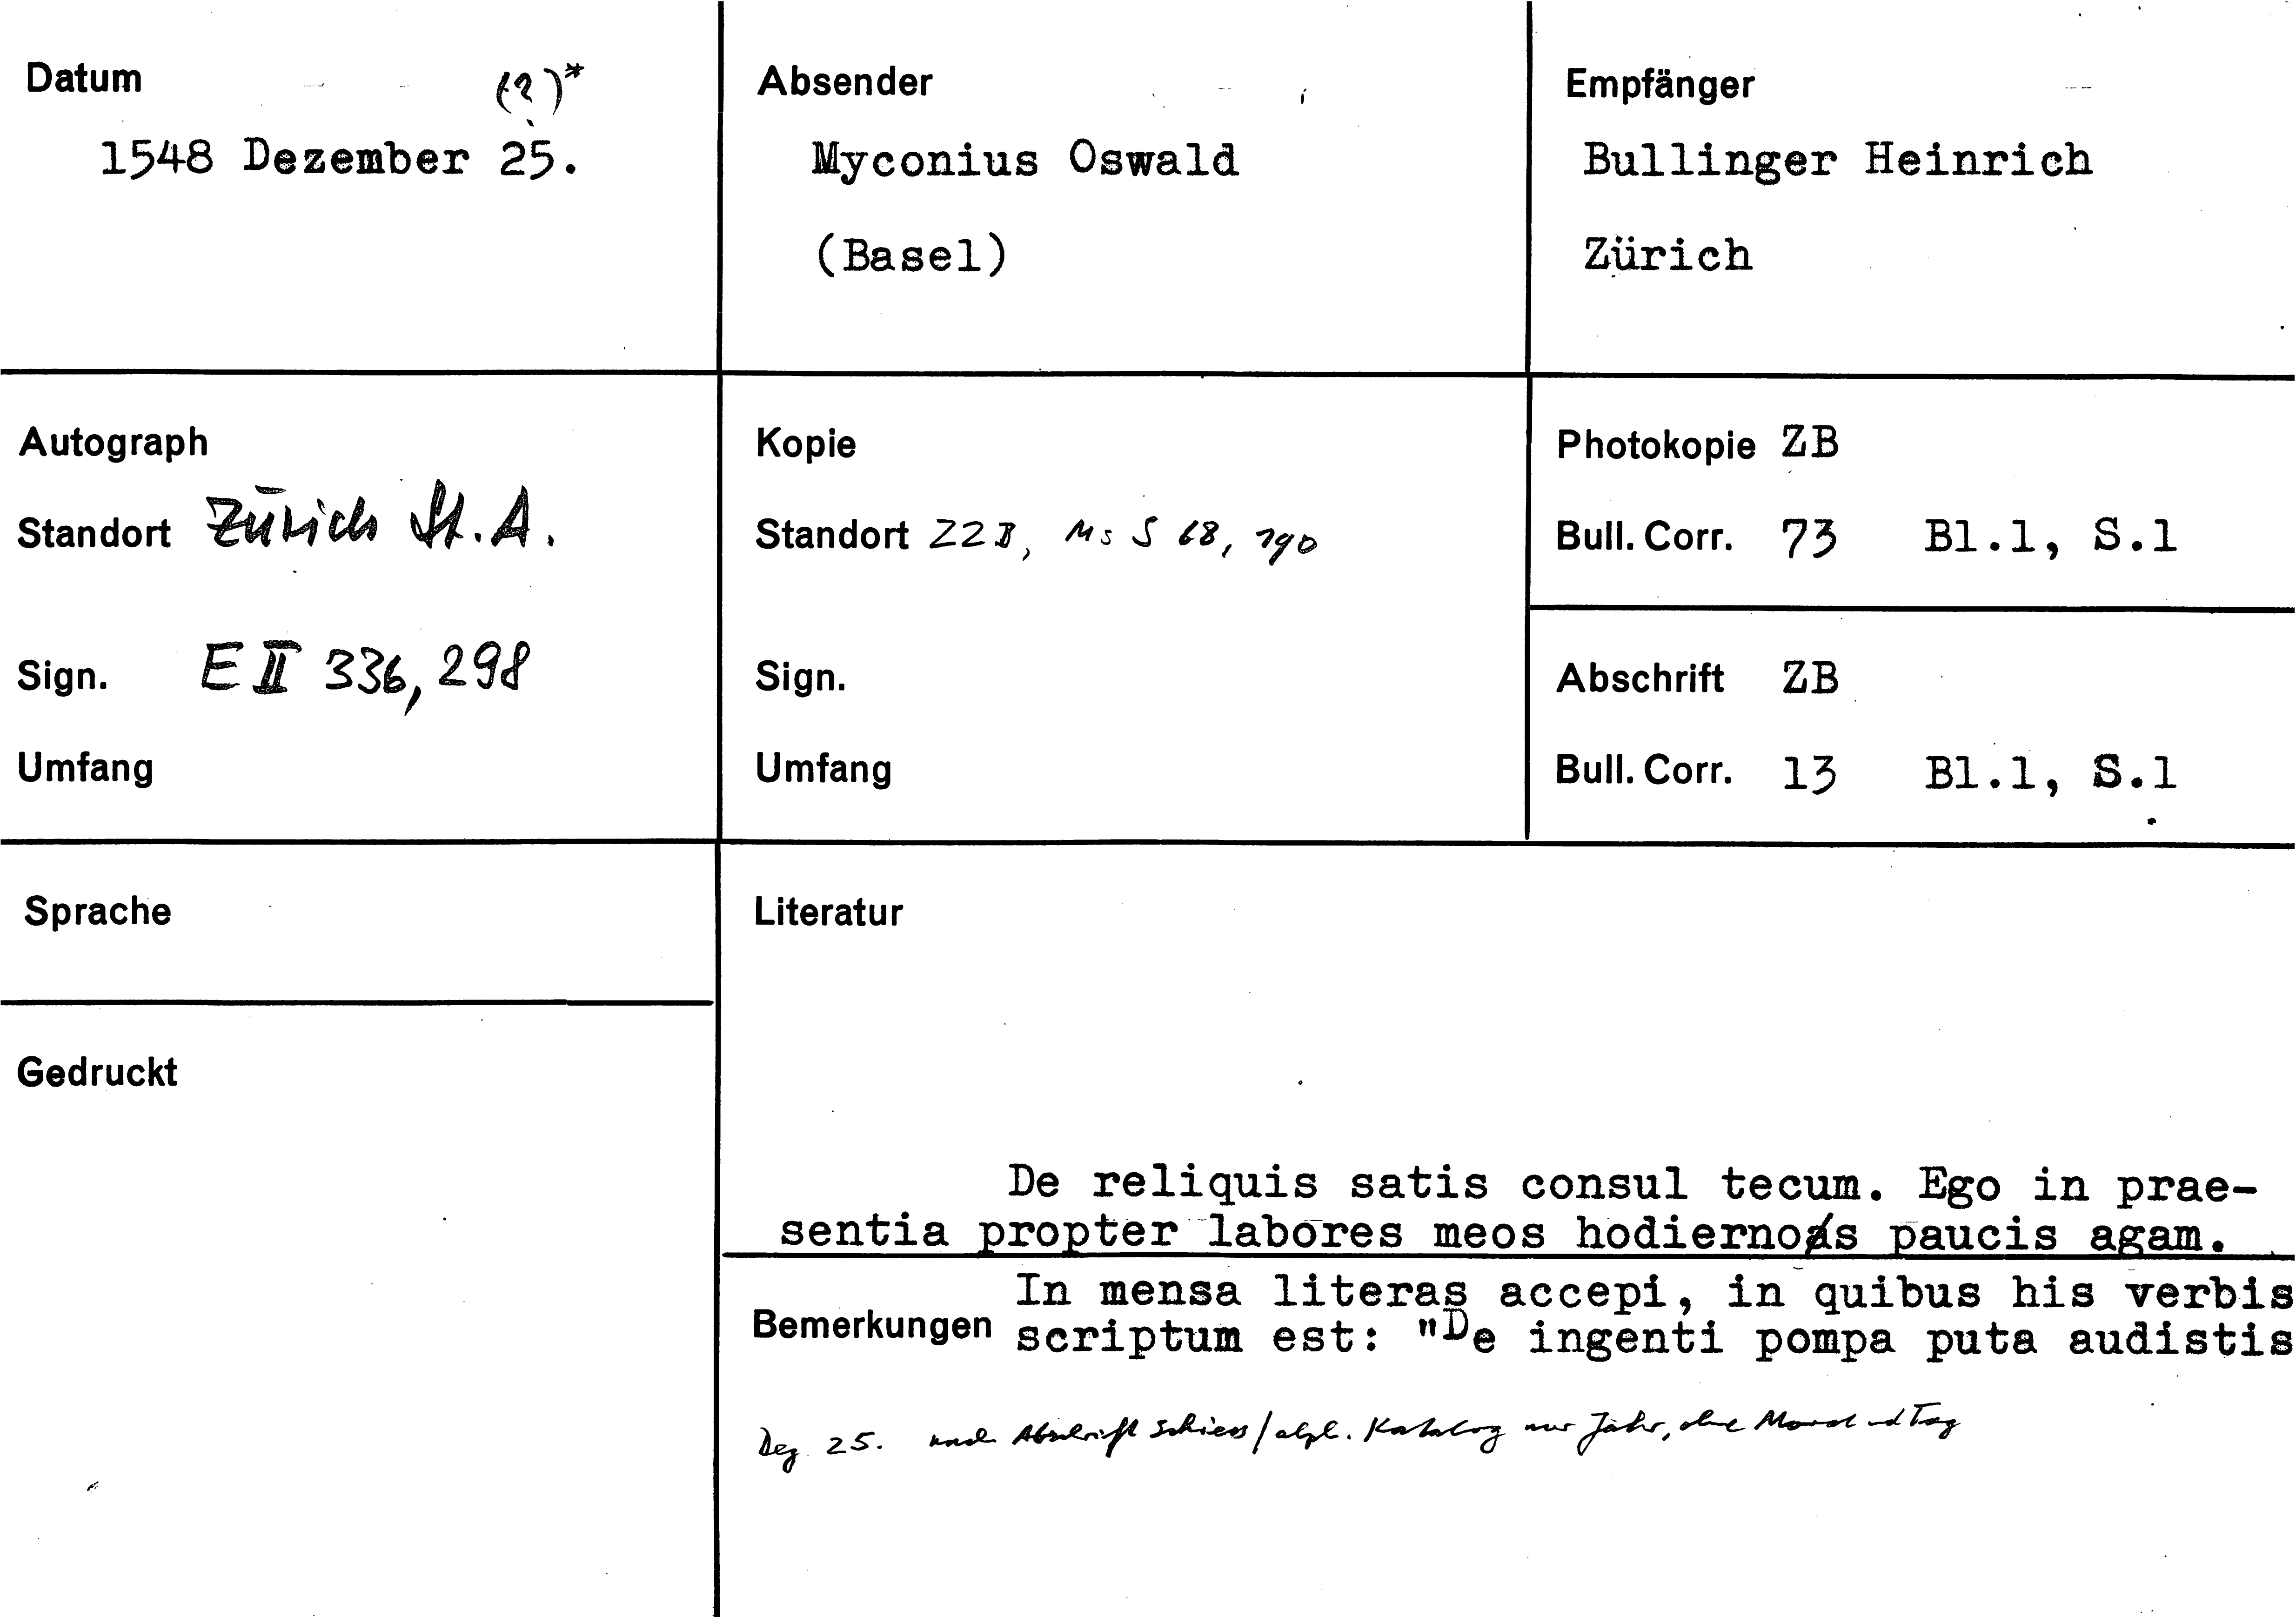 Datum (?)*
1548 Dezember 25.
Absender
Myconius Oswald
(Basel)
Empfänger
Bullinger Heinrich
Zürich
Autograph
Standort Zürich St. A.
Sign. E II 336, 298
Umfang
Kopie
Standort ZZB, Ms S 68, 190
Sign.
Umfang
Photokopie ZB
Bull. Corr. 73 Bl.1, S.1
Abschrift ZB
Bull. Corr. 13 Bl.1, S.1
Sprache
Gedruckt
Literatur
De reliquis satis consul tecum. Ego in prae-
sentia propter labores meos hodiernos paucis agam.
In mensa literas accepi, in quibus his verbis
Bemerkungen scriptum est: "De ingenti pompa puta audistis
Dez 25. nach Abschrift Schiess / alph. Katalog nur Jahr, ohne Monat und Tag